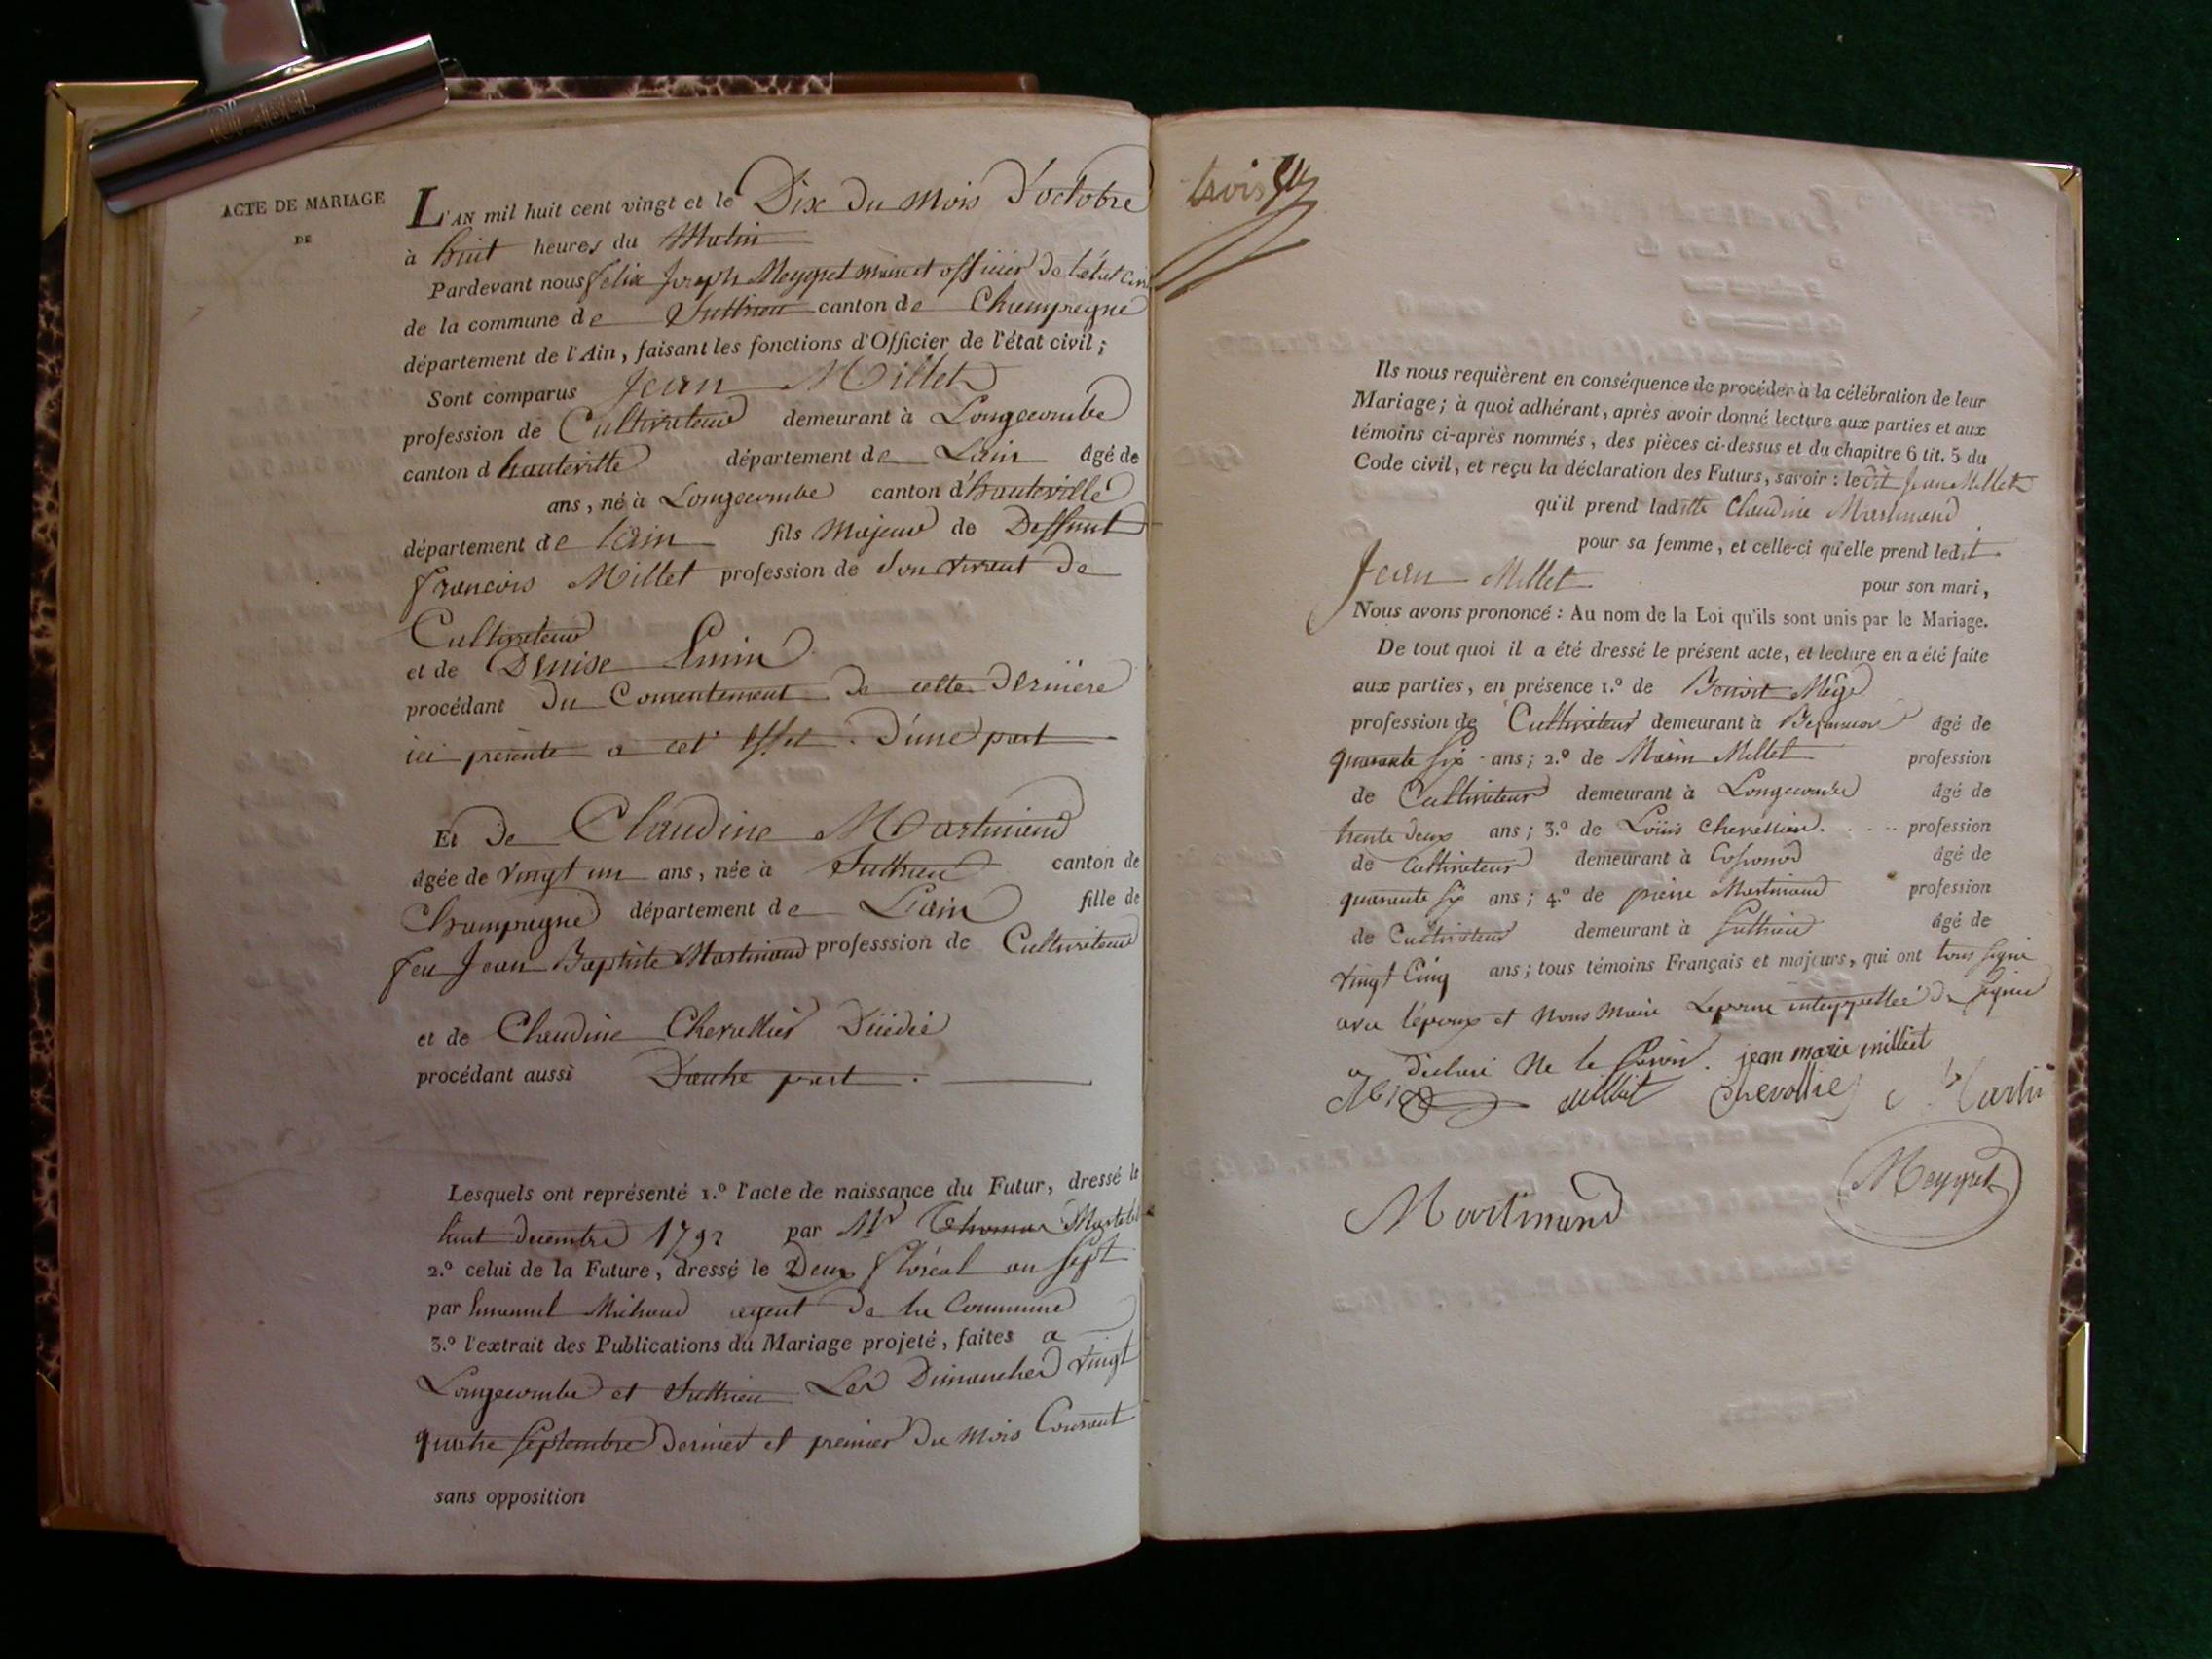 ACTE DE MARIAGE
DE
L'AN mil huit cent vingt et le Dix du mois d'octobre
à huit heures du Matin
Pardevant nous felix Joseph Meygret maire et officier de l'état civil
de la commune de Suthrieu canton de Champagne
département de l'Ain, faisant les fonctions d'Officier de l'état civil;
Sont comparus Jean Millet
profession de Cultivateur demeurant à Longecombe
canton d hauteville département de Lain âgé de
ans, né à Longecombe canton d'hauteville
département de lain fils Majeur de Deffunt
françois Millet profession de Son vivant de
Cultivateur
et de Denise
procédant du Consentement de cette derniere
ici présente a cet effet. D'une part
Et De Claudine Martinand
âgée de vingt un ans, née à Suthrieu canton de
Champagne département de Lain fille de
feu Jean Baptiste Martinand professsion de Cultivateur
et de Claudine Chevallier
procédant aussi D'autre part.
Lesquels ont représenté 1.º l'acte de naissance du Futur, dressé le
huit decembre 1792 par Mr Thomas
2.º celui de la Future, dressé le Deux floréal an Sept
par agent de la Commune
3.º l'extrait des Publications du Mariage projeté, faites a
Longecombe et Suthrieu Les Dimanches vingt
quatre septembre dernier et premier du mois Courant
sans opposition
trois
Ils nous requièrent en conséquence de procéder à la célébration de leur
Mariage; à quoi adhérant, après avoir donné lecture aux parties et aux
témoins ci-après nommés, des pièces ci-dessus et du chapitre 6 tit. 5 du
Code civil, et reçu la déclaration des Futurs, savoir: le dit Jean Millet
qu'il prend laditte Claudine Martinand
pour sa femme, et celle-ci qu'elle prend ledit
Jean Millet pour son mari,
Nous avons prononcé: Au nom de la Loi qu'ils sont unis par le Mariage.
De tout quoi il a été dressé le présent acte, et lecture en a été faite
aux parties, en présence 1.º de Benoit
profession de Cultivateur demeurant à âgé de
quarante six ans; 2.º de Marin Millet profession
de Cultivateur demeurant à Longecombe âgé de
trente deux ans; 3.º de Loüis Chevallier. profession
de Cultivateur demeurant à âgé de
quarante six ans; 4.º de pierre Martinand profession
de Cultivateur demeurant à Suthrieu âgé de
vingt Cinq ans; tous témoins Français et majeurs, qui ont tous signé
avec l'époux et Nous Maire Lepouse interpellée de signer
a declaré ne le savoir. jean marie milliet
milliet chevallier Martin
Martinand Meygret